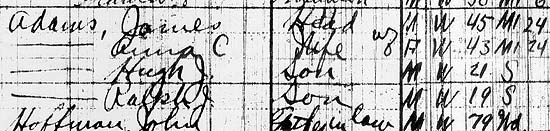 Adams, James Head M W 45 M1 24
—— Anna C Wife F W 43 M1 24
—— Hugh J. Son M W 21 S
—— Ralph J. Son M W 19 S
Hoffman, John Father in law M W 79 Wd